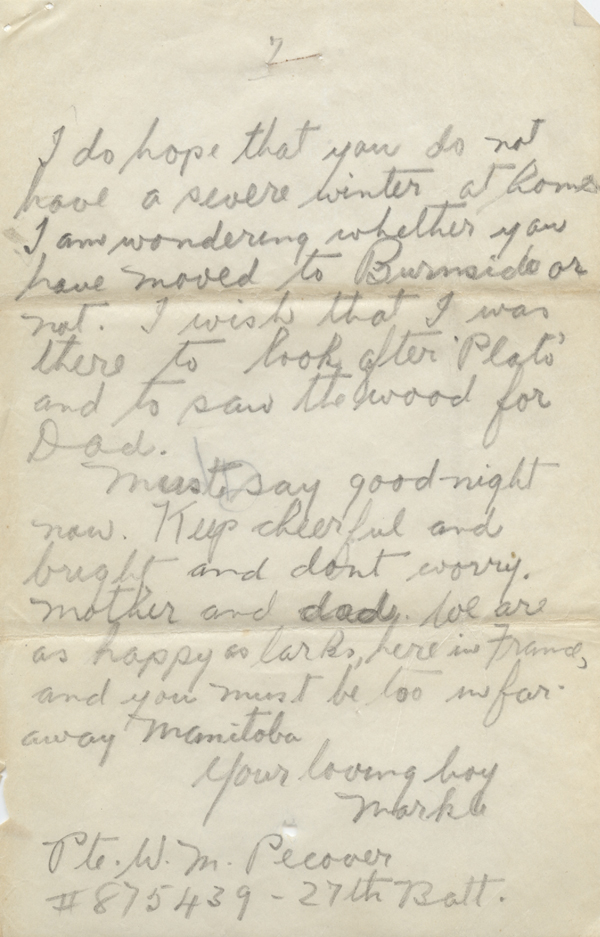 7
I do hope that you do not
have a severe winter at home
I am wondering whether you
have moved to Burnside or
not. I wish that I was
there to look after 'Plato'
and to saw the wood for
Dad.
Must say good-night
now. Keep cheerful and
bright and dont worry.
Mother and dad. We are
as happy as larks, here in France,
and you must be too in far-
away Manitoba
Your loving boy
Mark
Pte. W. M. Pecover
#875439 - 27th Batt.